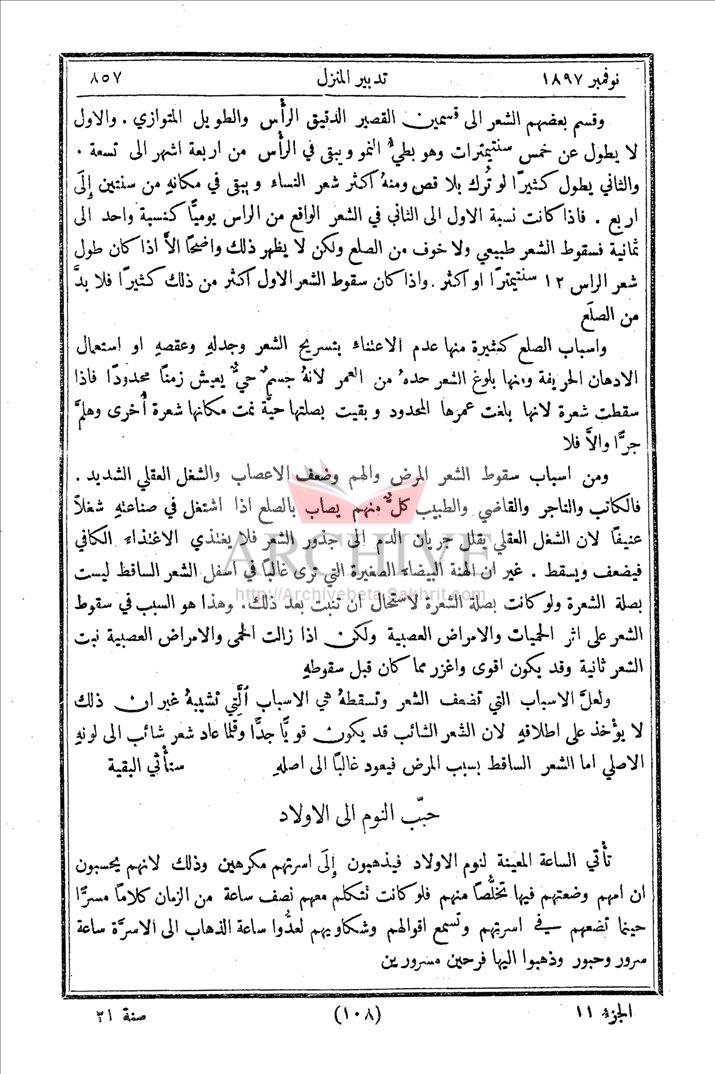 نوفمبر ١٨٩٧ تدبير المنزل ٨٥٧
وقسم بعضهم الشعر الى قسمين القصير الدقيق الرأس والطويل المتوازي . والاول
لا يطول عن خمس سنتيمترات وهو بطيءُ النمو ويبقى في الرأس من اربعة اشهر الى تسعة .
والثاني يطول كثيرًا لو تُرك بلا قص ومنهُ اكثر شعر النساء ويبقى في مكانهِ من سنتين إِلَى
اربع . فاذا كانت نسبة الاول الى الثاني في الشعر الواقع من الراس يوميًّا كنسبة واحد الى
ثمانية فسقوط الشعر طبيعي ولا خوف من الصلع ولكن لا يظهر ذلك واضحًا الأَّ اذا كان طول
شعر الراس ١٢ سنتيمترًا او اكثر . واذا كان سقوط الشعر الاول اكثر من ذلك كثيرًا فلا بدَّ
من الصلَع
واسباب الصلع كثيرة منها عدم الاعتناء بتسريح الشعر وجدلهِ وعقصهِ او استعمال
الادهان الحريفة ومنها بلوغ الشعر حدهُ من العمر لانهُ جسمٌ حيٌّ يعيش زمنًا محدودًا فاذا
سقطت شعرة لانها بلغت عمرها المحدود وبقيت بصلتها حيَّة نمت مكانها شعرة أُخرى وهلمَّ
جرًّا والاَّ فلا
ومن اسباب سقوط الشعر المرض والهم وضعف الاعصاب والشغل العقلي الشديد .
فالكاتب والتاجر والقاضي والطبيب كلٌّ منهم يصاب بالصلع اذا اشتغل في صناعتهِ شغلاً
عنيفًا لان الشغل العقلي يقلل جريان الدم الى جذور الشعر فلا يغتذي الاغتذاء الكافي
فيضعف ويسقط . غير ان الهنة البيضاء الصغيرة التي ترى غالبًا في اسفل الشعر الساقط ليست
بصلة الشعرة ولو كانت بصلة الشعرة لاستحال ان تنبت بعد ذلك . وهذا هو السبب في سقوط
الشعر على اثر الحميات والامراض العصبية ولكن اذا زالت الحمى والامراض العصبية نبت
الشعر ثانية وقد يكون اقوى واغزر مما كان قبل سقوطهِ
ولعلَّ الاسباب التي تضعف الشعر وتسقطهُ هي الاسباب التي تشيبهُ غير ان ذلك
لا يؤخذ على اطلاقهِ لان الشعر الشائب قد يكون قويًّا جدًّا وقلما عاد شعر شائب الى لونهِ
الاصلي اما الشعر الساقط بسبب المرض فيعود غالبًا الى اصلهِ ستأتي البقية
حبّب النوم الى الاولاد
تأتي الساعة المعينة لنوم الاولاد فيذهبون إِلَى اسرتهم مكرهين وذلك لانهم يحسبون
ان امهم وضعتهم فيها تخلُّصًا منهم فلو كانت تتكلم معهم نصف ساعة من الزمان كلامًا مسرًّا
حينما تضعهم في اسرتهم وتسمع اقوالهم وشكاويهم لعدُّوا ساعة الذهاب الى الاسرَّة ساعة
سرور وحبور وذهبوا اليها فرحين مسرورين
الجزء ١١ (١٠٨) سنة ٢١
ARCHIVE
http://Archivebeta.Sakhrit.com